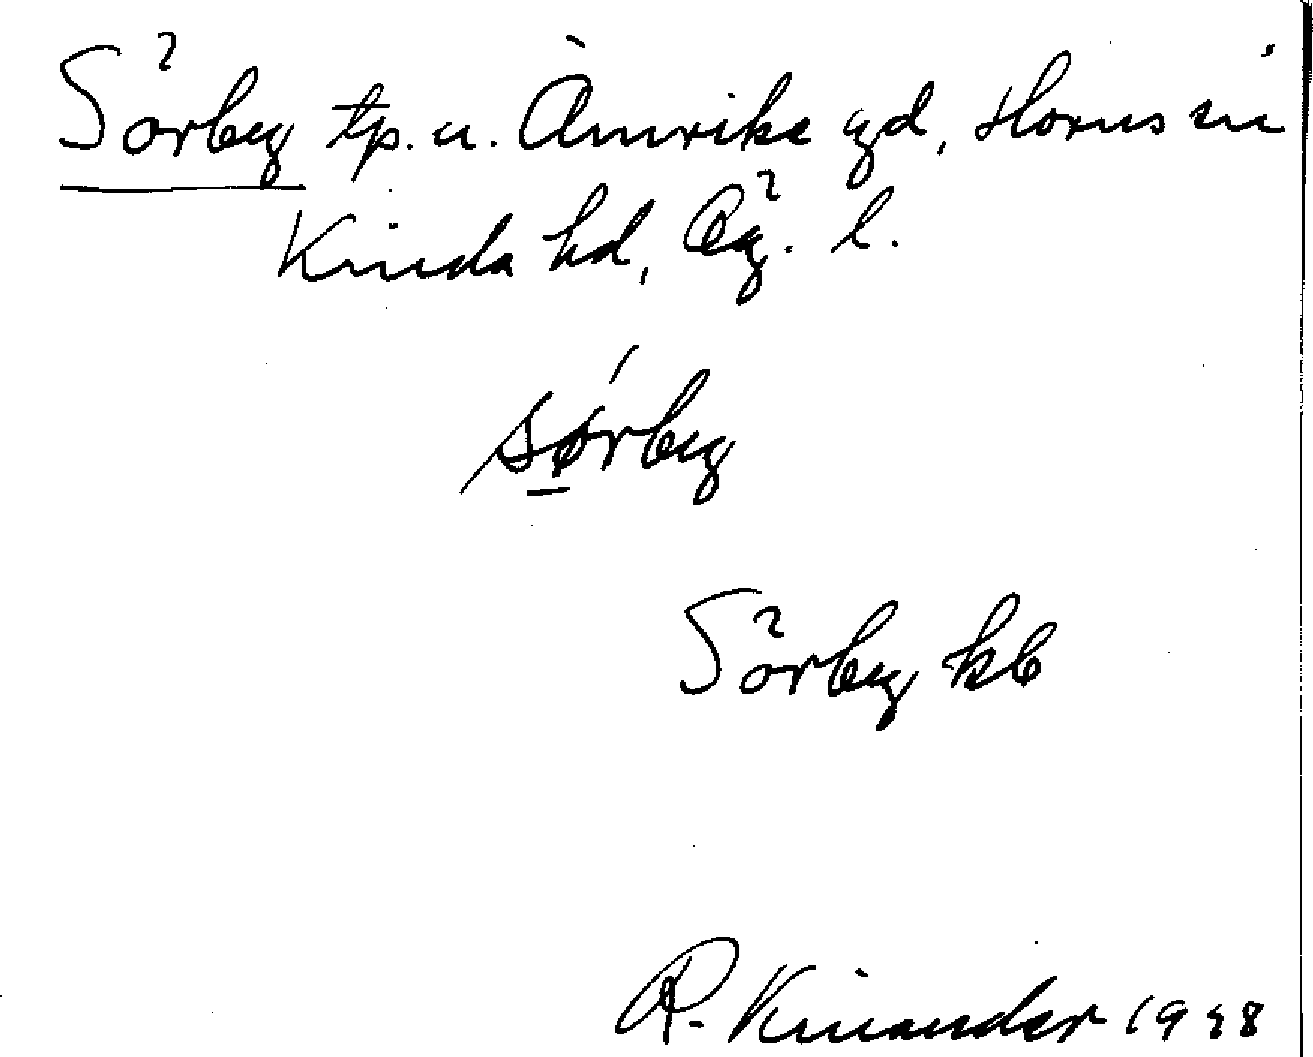 Sörby tp. u. Åmvike gd, Horns sn
Kinda hd, Ög. l.
sørby
Sörby kb
R. Kinander 1948